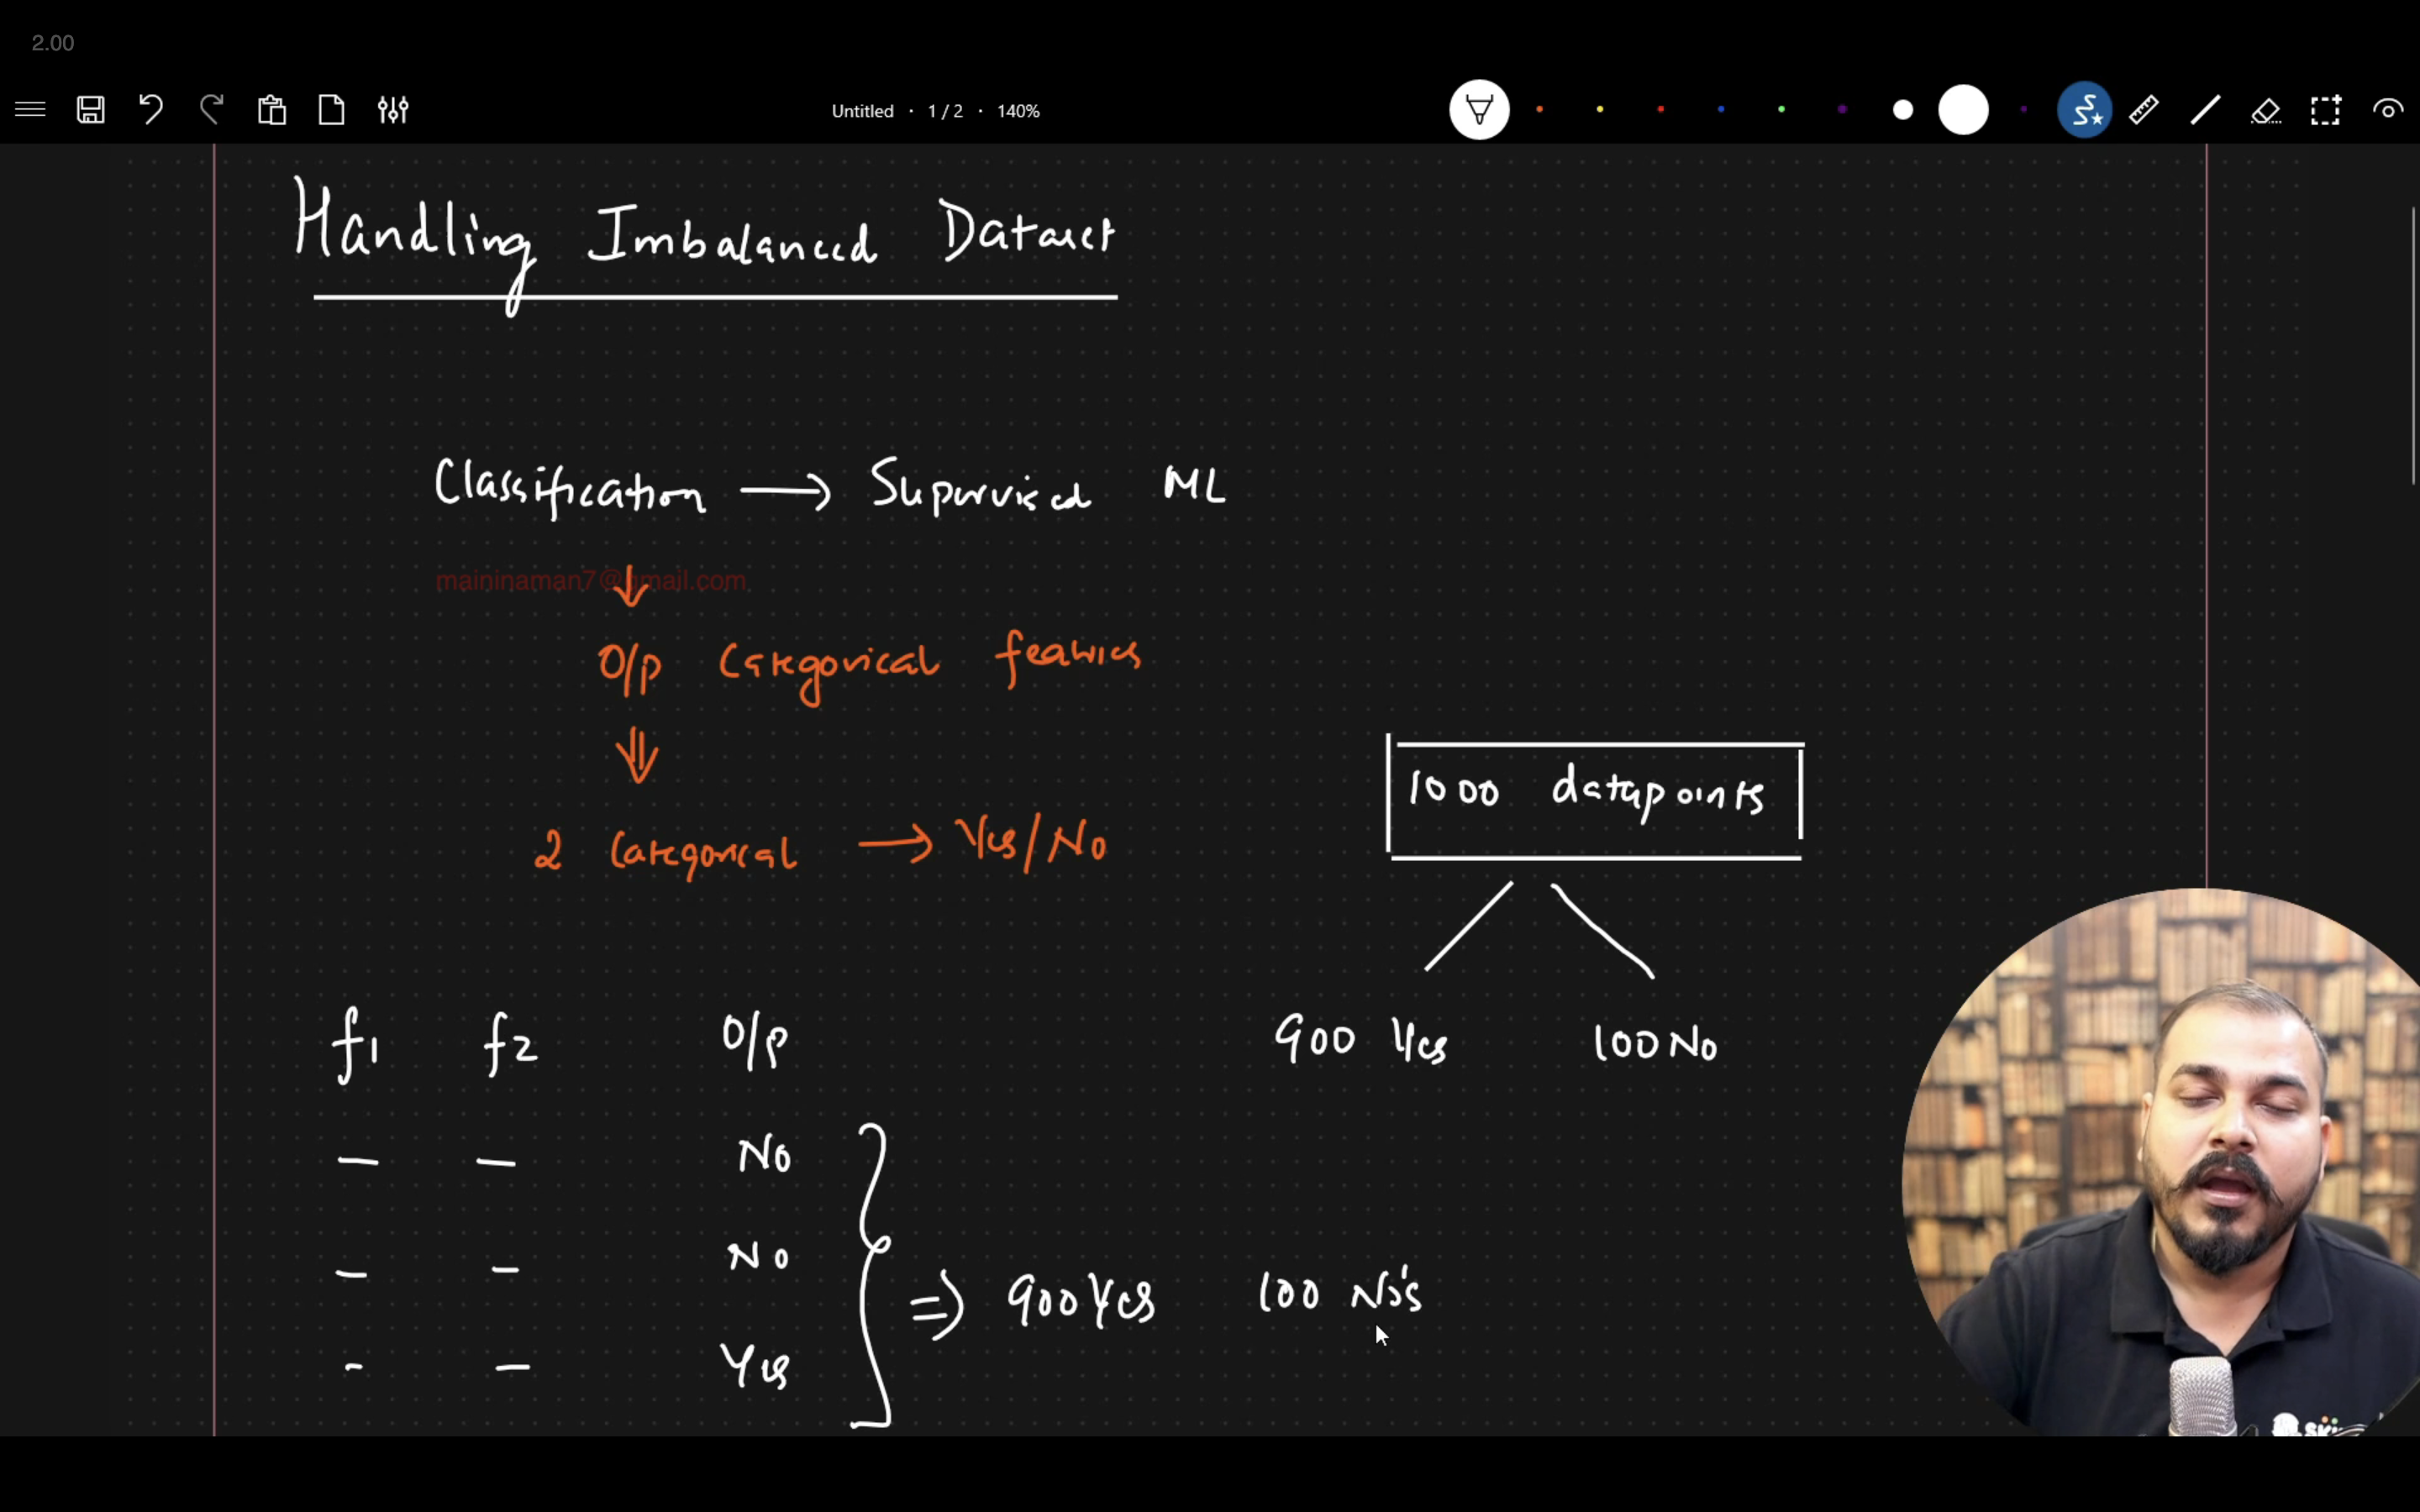 2.00
Untitled · 1 / 2 · 140%
Handling Imbalanced Dataset
Classification → Supervised ML
maininaman7@gmail.com
O/p Categorical features
2 Categorical → Yes/No
1000 datapoints
f1 f2 O/p
900 Yes 100 No
— — No
— — No
⇒ 900 Yes 100 No's
- — Yes